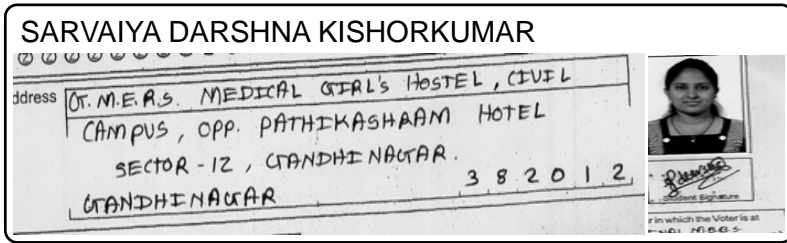 SARVAIYA DARSHNA KISHORKUMAR
ddress G.M.E.R.S. MEDICAL GIRL'S HOSTEL, CIVIL
CAMPUS, OPP. PATHIKASHRAM HOTEL
SECTOR-12, GANDHINAGAR.
GANDHINAGAR 382012
Student Signature
r in which the Voter is at
NAL M.B.B.S